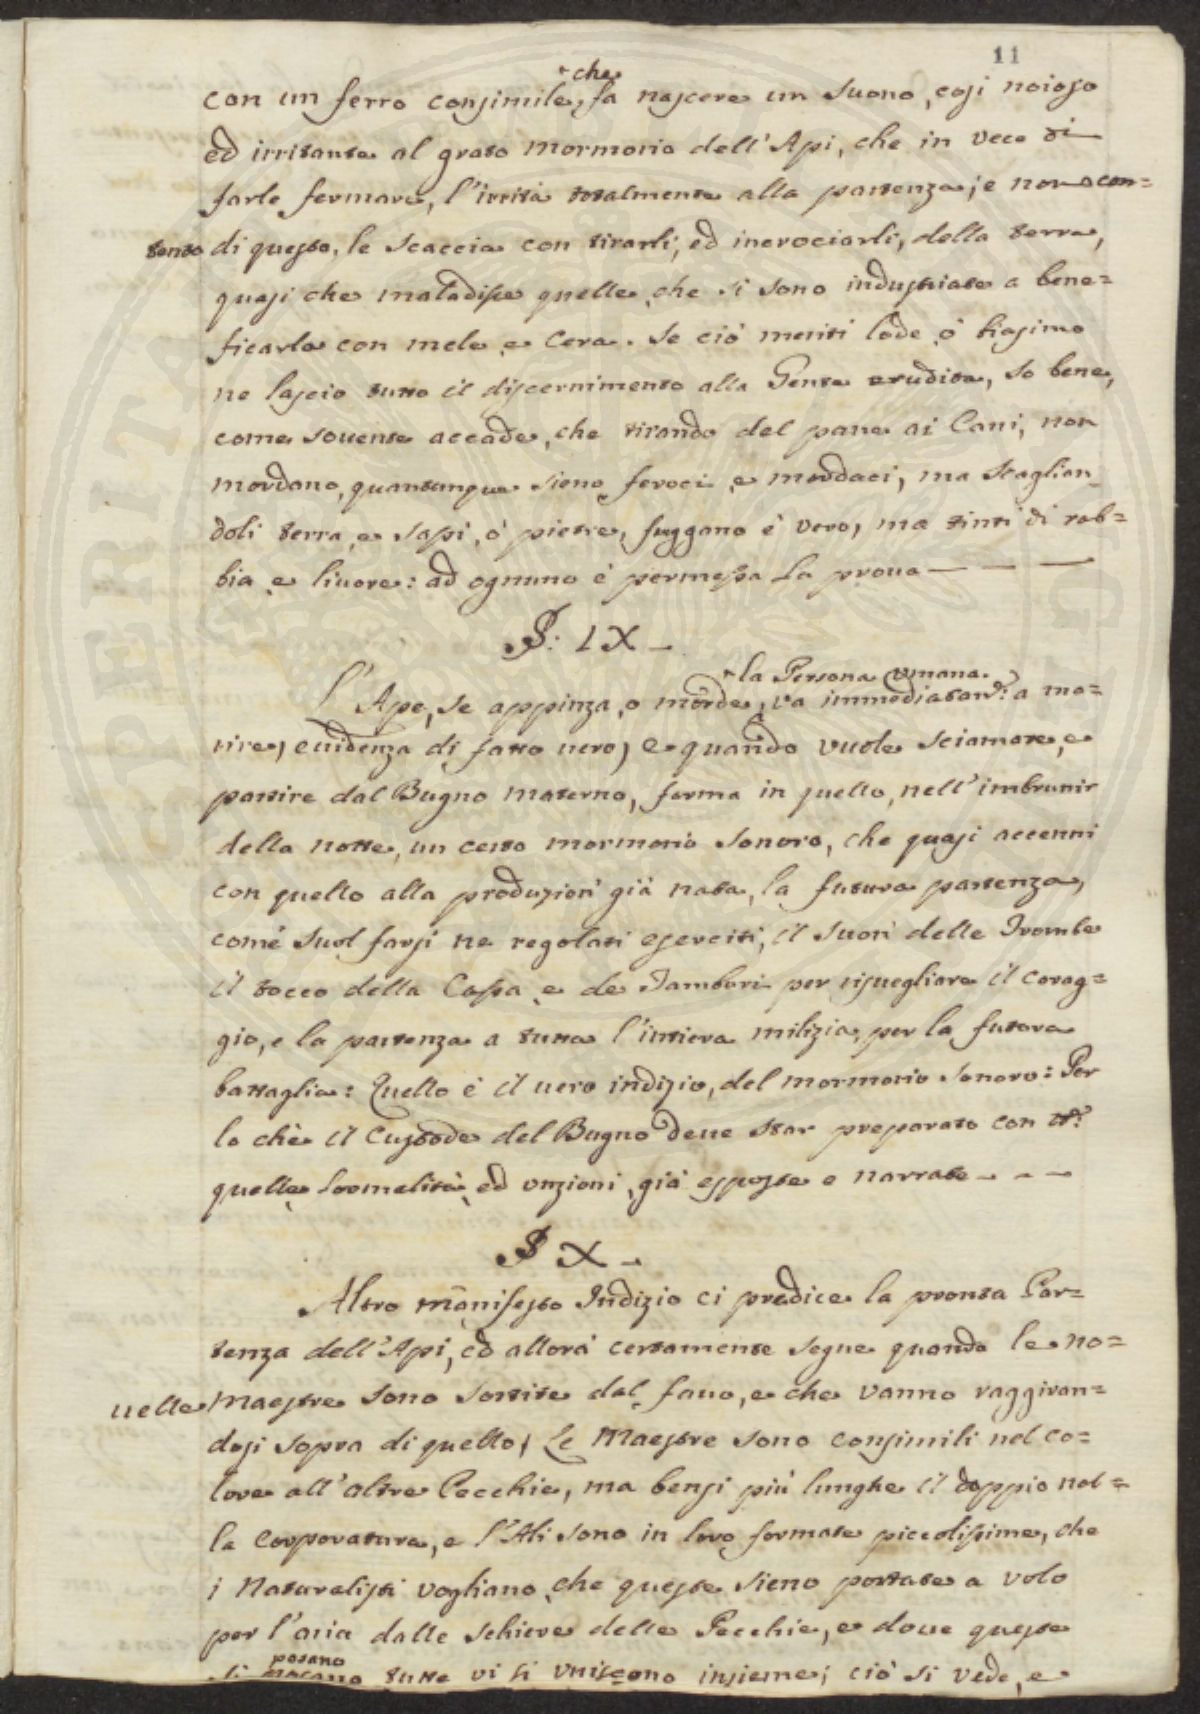 11
+che
con un ferro consimile, fa nascere un suono, così noioso
ed irritante al grato mormorio dell'Api, che in vece di
farle fermare, l'irrita totalmente alla partenza; e non con=
tento di questo, le scaccia con tirarli, ed incrociarli, della terra,
quasi che maladisse quelle, che si sono industriate a bene=
ficarlo con mele e Cera. Se ciò meriti lode, ò biasimo
ne lascio tutto il discernimento alla Gente erudita, so bene,
come sovente accade, che tirando del pane ai Cani, non
mordano, quantunque sieno feroci e mordaci, ma scaglian_
doli terra, e sassi, ò pietre, fuggano è vero, ma tinti di rab=
bia e livore: ad ognuno è permessa la prova — — —
§: IX —
+la Persona umana.
L'Ape, se appinza, o morde, va immediatam.e a mo=
rire, evidenza di fatto vero, e quando vuole sciamare, e
partire dal Bugno materno, forma in quello, nell'imbrunir
della notte, un certo mormorio sonoro, che quasi accenni
con quello alla produzion già nata, la futura partenza,
come suol farsi ne regolati eserciti, il suon delle Trombe
il tocco della Cassa e de Tamburi per risvegliare il corag=
gio, e la partenza a tutta l'intiera milizia, per la futura
battaglia: Quello è il vero indizio, del mormorio sonoro: Per
lo chè il Custode del Bugno deve star preparato con
quelle formalità, ed unzioni, già esposte e narrate — — —
§ X —
Altro manifesto Indizio ci predice la pronta Par=
tenza dell'Api, ed allora certamente segue quando le no=
velle Maestre sono sortite dal favo, e che vanno raggiran=
dosi sopra di quello, Le Maestre sono consimili nel co=
lore all'altre Pecchie, ma bensì più lunghe il doppio nel=
la corporatura, e l'Ali sono in loro formate piccolissime, che
i Naturalisti vogliano, che queste sieno portate a volo
per l'aria dalle schiere delle Pecchie, e dove queste
posano
si tutte vi si uniscono insieme; ciò si vede, e